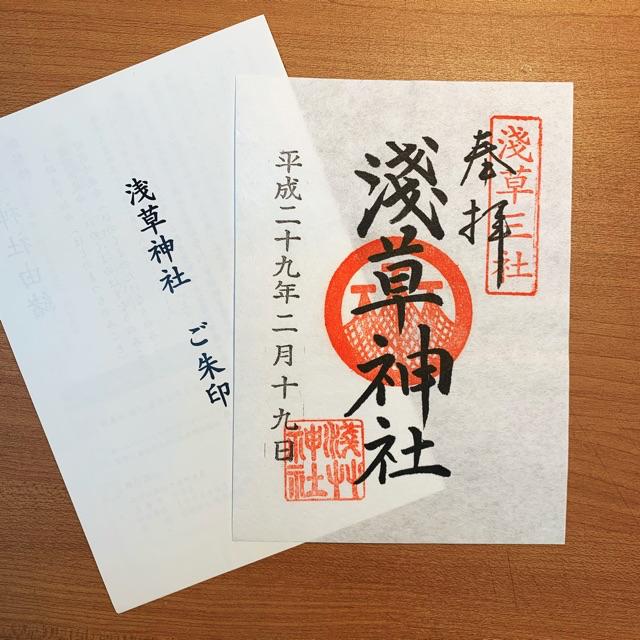 浅草神社　ご朱印
奉拝
淺草三社
淺草神社
平成二十九年二月十九日
淺草
神社